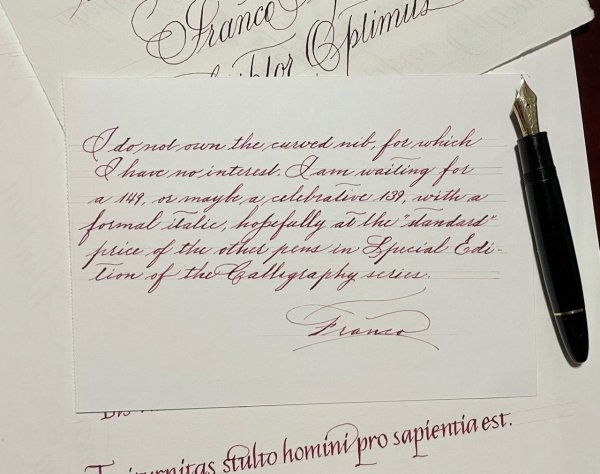 Franco
Optimus
I do not own the curved nib, for which
I have no interest. I am waiting for
a 149, or maybe a celebrative 139, with a
formal italic, hopefully at the "standard"
price of the other pens in Special Edi-
tion of the Calligraphy series.
Franco
stulto homini pro sapientia est.